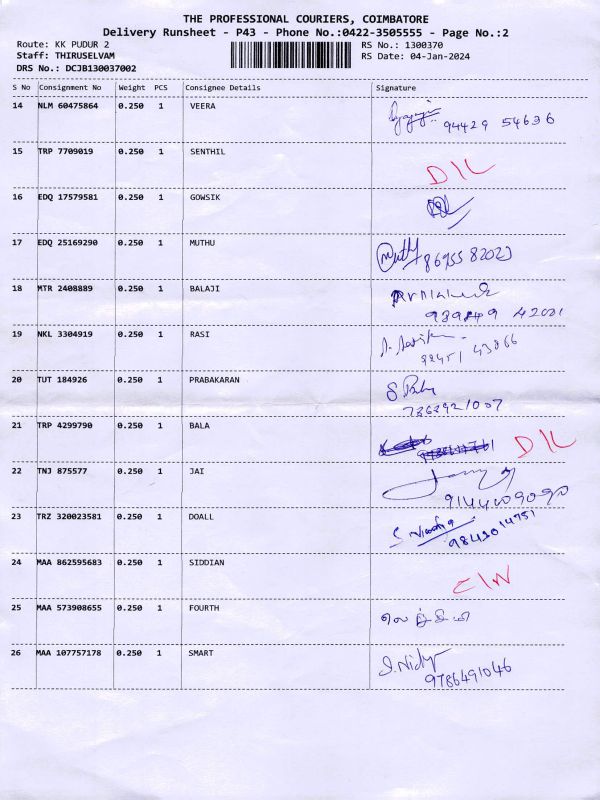 THE PROFESSIONAL COURIERS, COIMBATORE
Delivery Runsheet - P43 - Phone No.:0422-3505555 - Page No.:2
Route: KK PUDUR 2 RS No.: 1300370
Staff: THIRUSELVAM RS Date: 04-Jan-2024
DRS No.: DCJB130037002
S No Consignment No Weight PCS Consignee Details Signature
14 NLM 60475864 0.250 1 VEERA
94429 54636
15 TRP 7709019 0.250 1 SENTHIL
D/L
16 EDQ 17579581 0.250 1 GOWSIK
17 EDQ 25169290 0.250 1 MUTHU
Muthu 86955 82023
18 MTR 2408889 0.250 1 BALAJI
19 NKL 3304919 0.250 1 RASI
20 TUT 184926 0.250 1 PRABAKARAN
21 TRP 4299790 0.250 1 BALA
D/L
22 TNJ 875577 0.250 1 JAI
9144009090
23 TRZ 320023581 0.250 1 DOALL
9843014751
24 MAA 862595683 0.250 1 SIDDIAN
C/N
25 MAA 573908655 0.250 1 FOURTH
26 MAA 107757178 0.250 1 SMART
9786491046